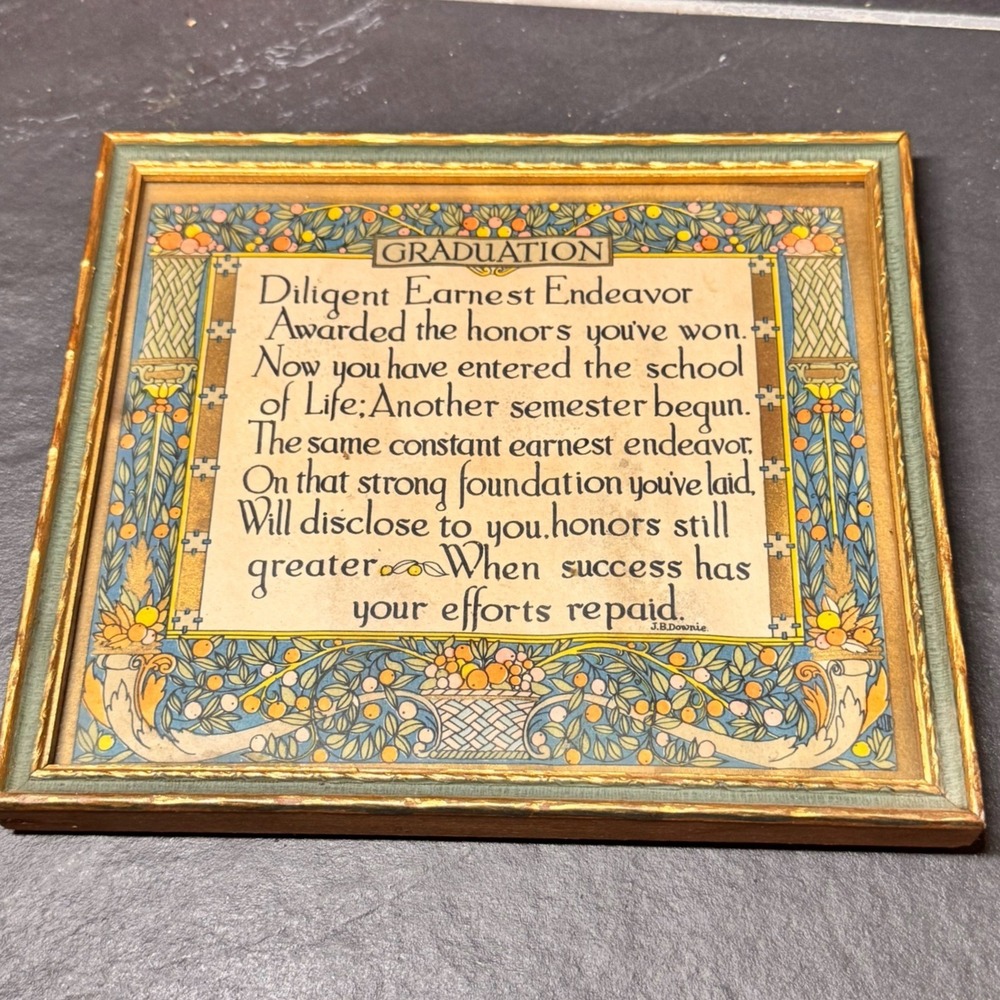 GRADUATION
Diligent Earnest Endeavor
Awarded the honors you've won.
Now you have entered the school
of Life; Another semester begun.
The same constant earnest endeavor,
On that strong foundation you've laid,
Will disclose to you, honors still
greater When success has
your efforts repaid.
J.B.Downie.